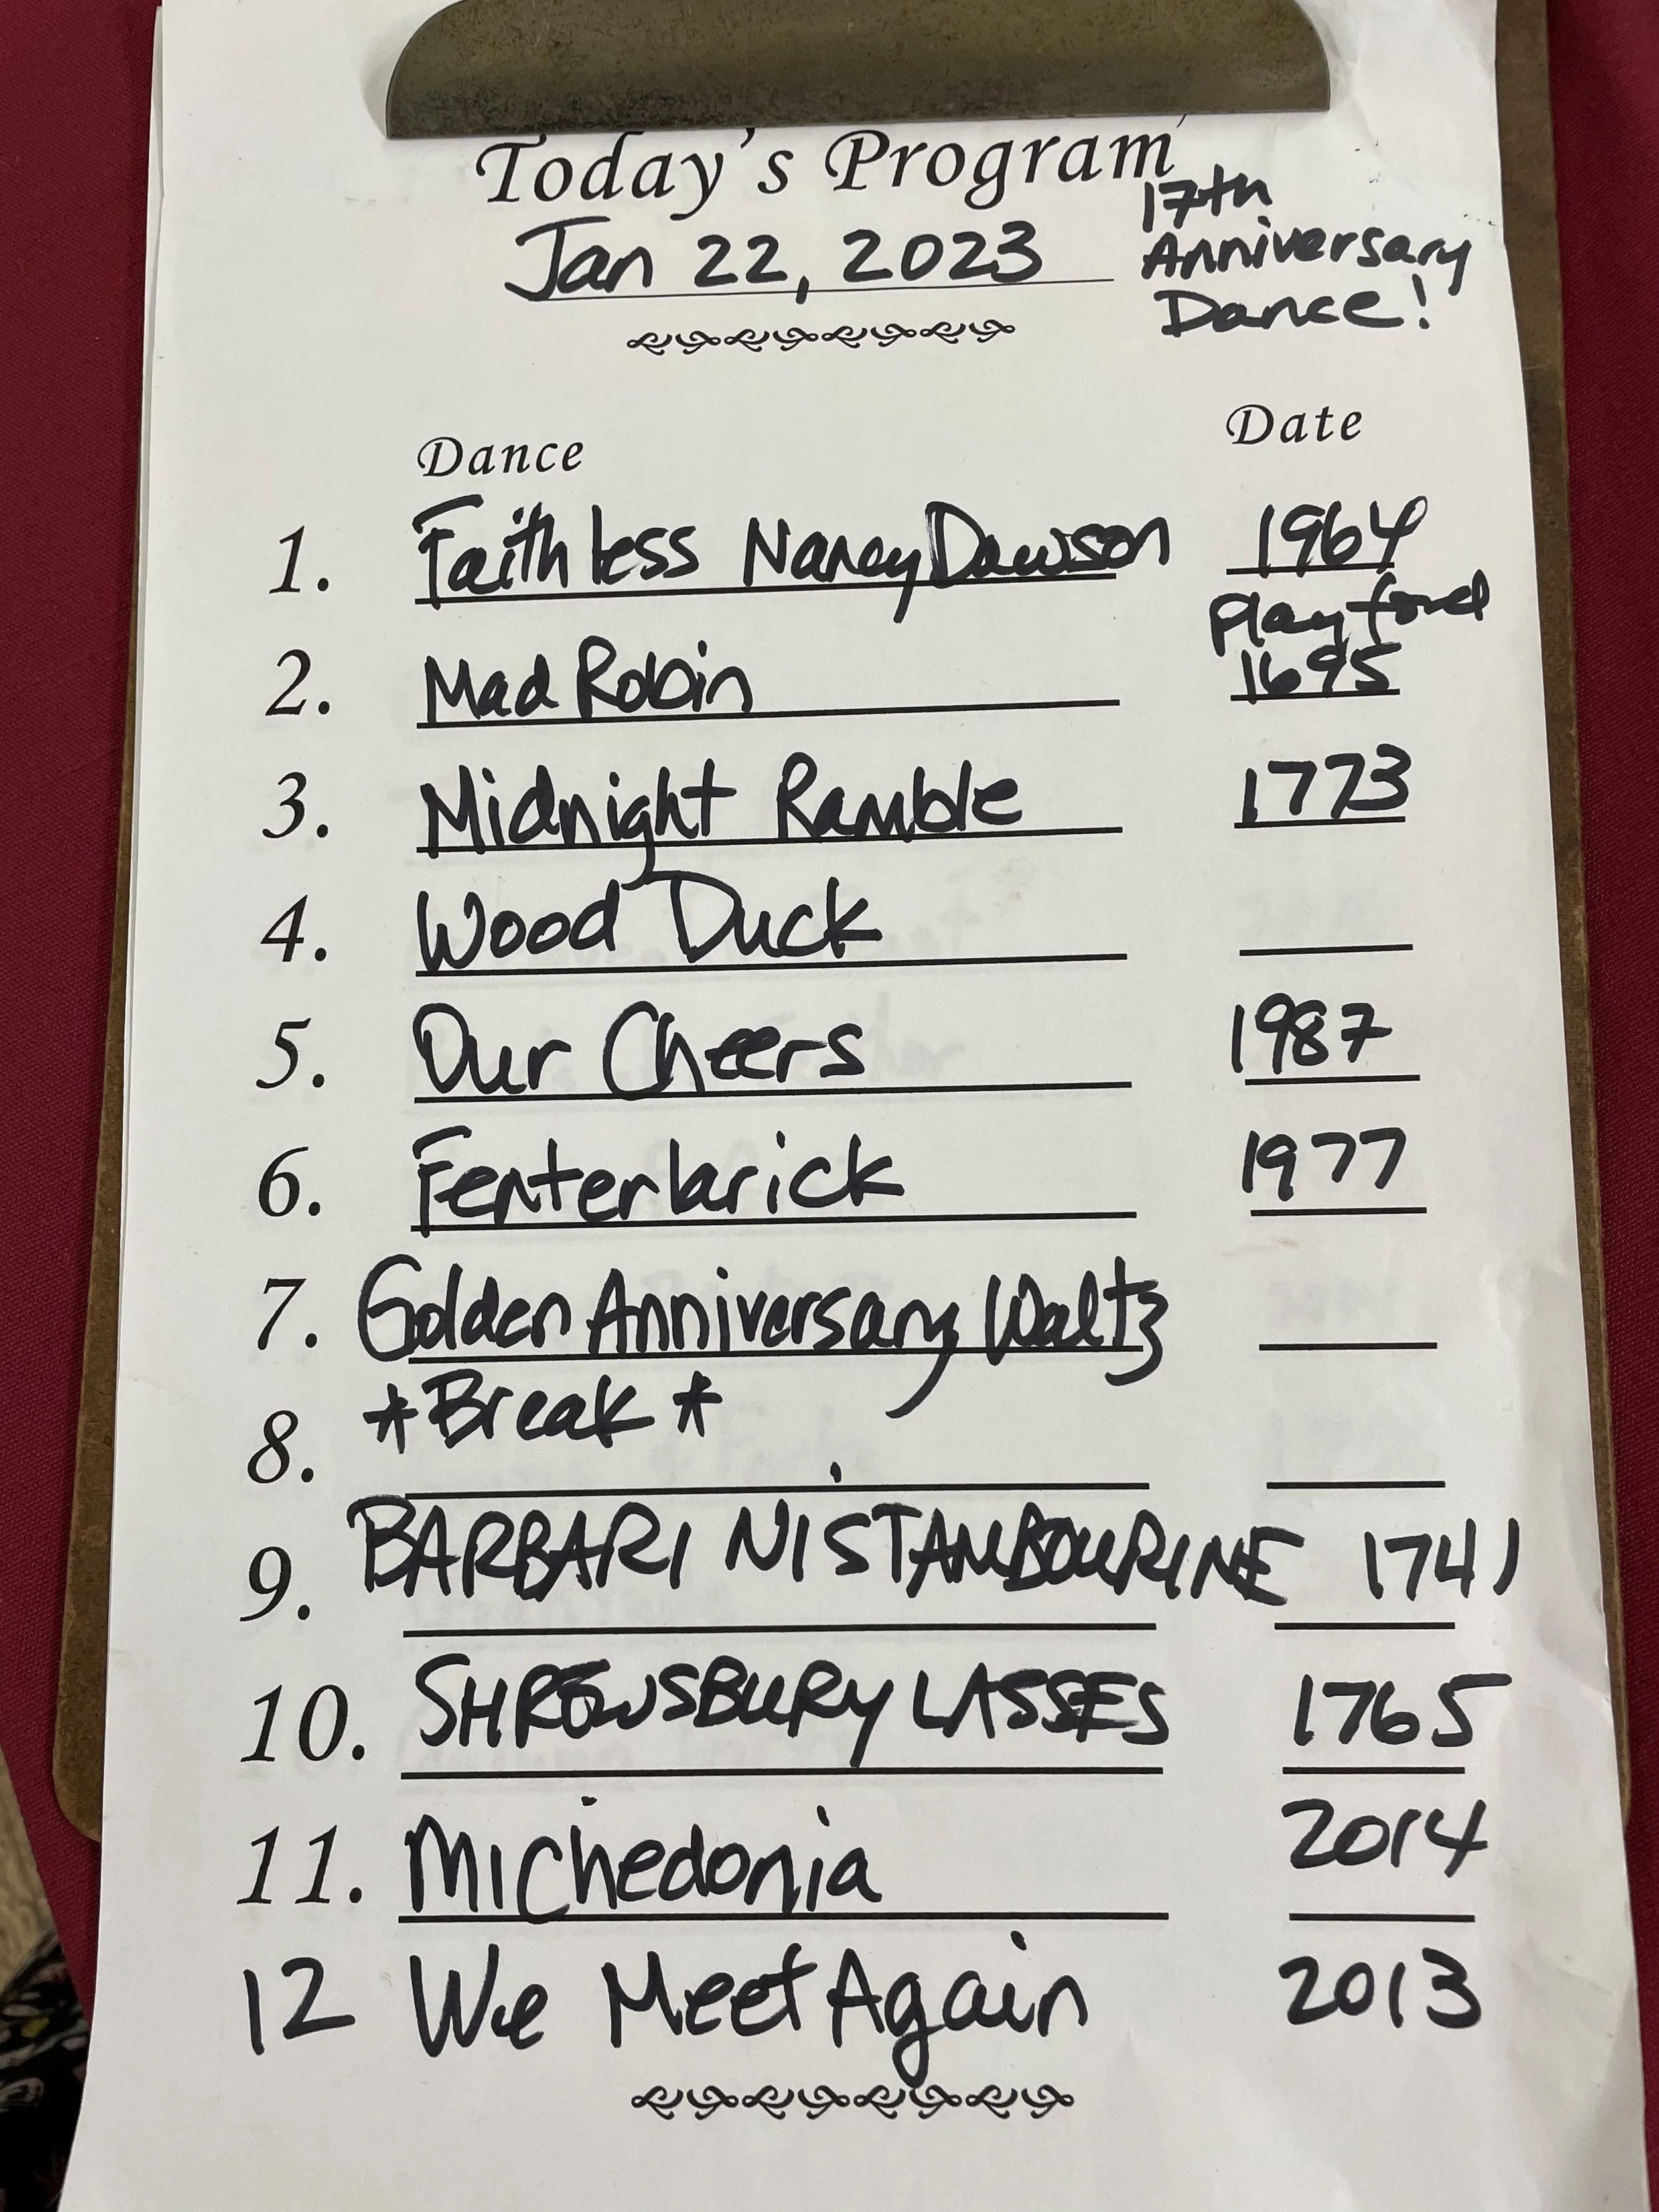 Today's Program
Jan 22, 2023
17th
Anniversary
Dance!
Dance Date
1. Faithless Nancy Dawson 1964
Playford
2. Mad Robin 1695
3. Midnight Ramble 1773
4. Wood Duck
5. Our Cheers 1987
6. Fenterlarick 1977
7. Golden Anniversary Waltz
8. *Break*
9. BARBARINIS TAMBOURINE 1741
10. SHREWSBURY LASSES 1765
11. Michedonia 2014
12 We Meet Again 2013